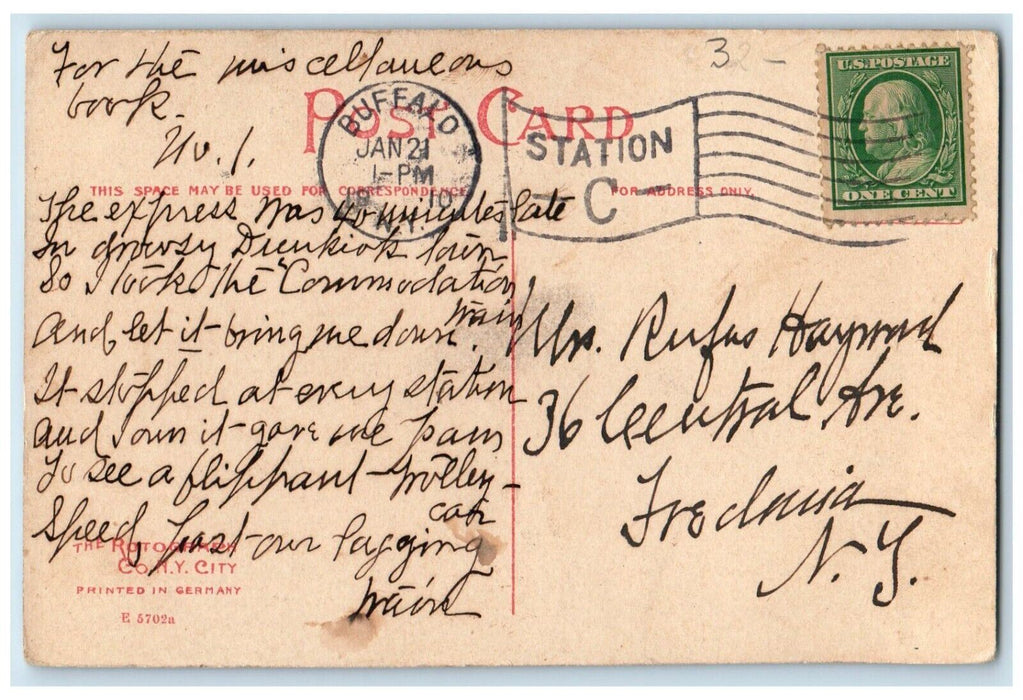 For the miscellaneous
book.
No. 1.
32-
U.S. POSTAGE
ONE CENT
POST CARD
BUFFALO
JAN 21
1-PM
1910
N.Y.
STATION
C
THIS SPACE MAY BE USED FOR CORRESPONDENCE
FOR ADDRESS ONLY.
The express was 40 minutes late
In drowsy Dunkirk town
So I took the "Commodation
train"
And let it bring me down.
It stopped at every station
And I own it gave me pain
To see a flippant trolley-
car
Speed past our lagging
train
Mrs. Rufus Hayward
36 Central Ave.
Fredonia
N.Y.
THE ROTOGRAPH
CO. N.Y. CITY
PRINTED IN GERMANY
E 5702a